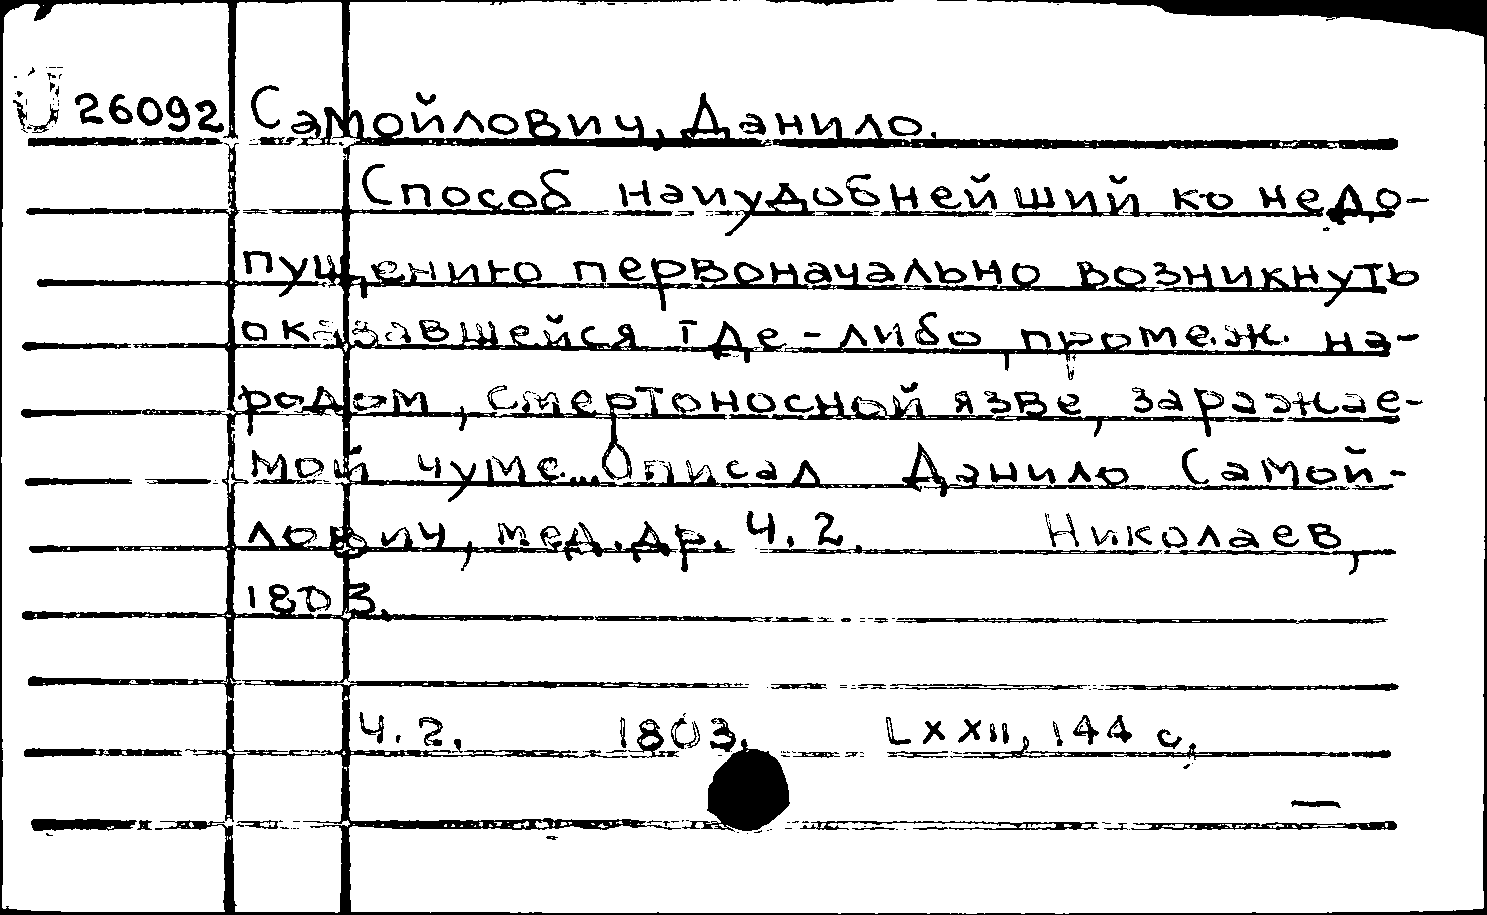 U 26092 Самойлович, Данило.
Способ наиудобнейший ко недо-
пущению первоначально возникнуть
оказавшейся где-либо, промеж на-
родом, смертоносной язве, заражае-
мой чуме...Описал Данило Самой-
лович, мед. др. Ч. 2. Николаев,
1803.
Ч. 2. 1803. LXXII, 144 с.